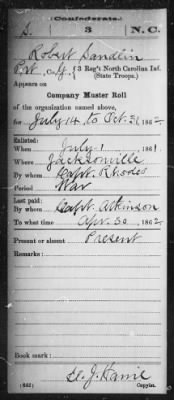 Confederate.
S. 3 N.C.
Robert Sandlin
Pvt, Co. 3 Reg't North Carolina Inf.
(State Troops.)
Appears on
Company Muster Roll
of the organization named above,
for July 14 to Oct 31, 1862
Enlisted:
When July 1 1861
Where Jacksonville
By whom Capt. Rhodes
Period War
Last paid:
By whom Capt. Atkinson
To what time Apr. 30 1862
Present or absent Present
Remarks:
Book mark:
(642) Copyist.